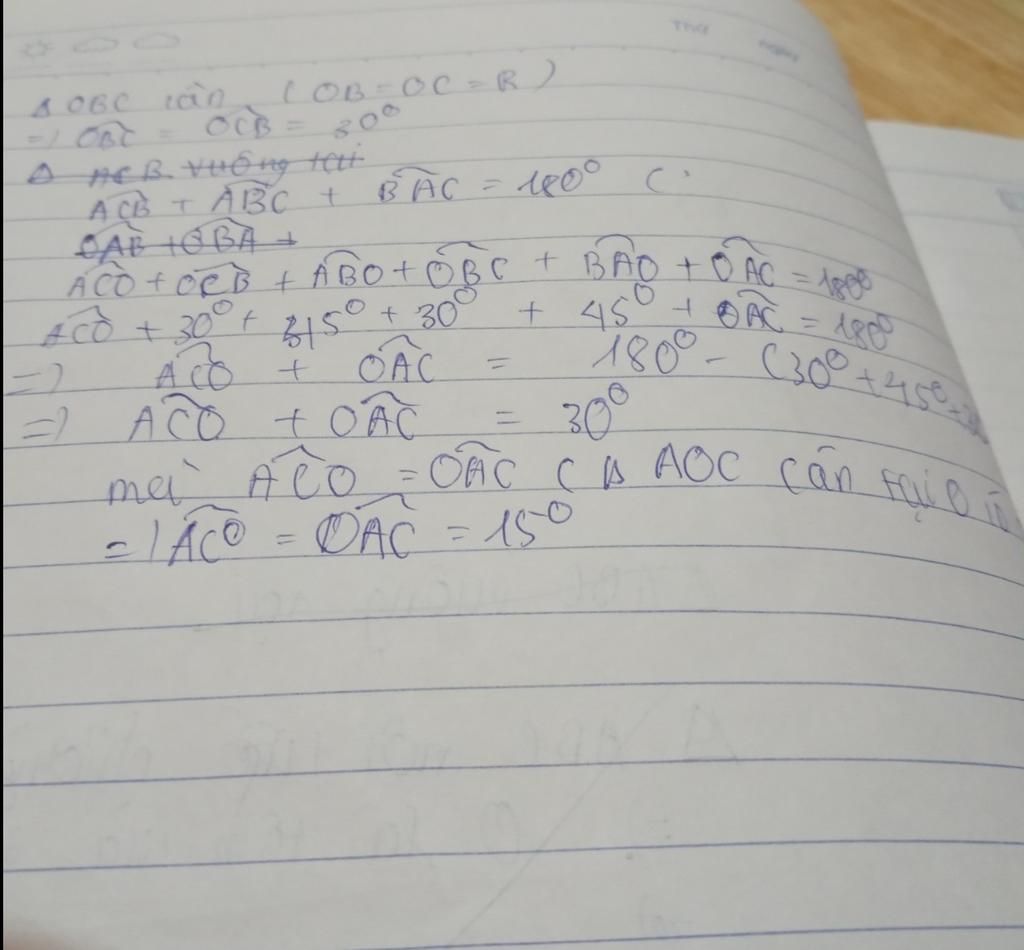 Thứ ngày
Δ OBC cân (OB = OC = R)
=) OBC = OCB = 30°
Δ ACB vuông tại
ACB + ABC + BAC = 180° (
OAB + OBA +
ACO + OCB + ABO + OBC + BAO + OAC = 180°
ACO + 30° + 45° + 30° + 45° + OAC = 180°
=) ACO + OAC = 180° - (30° + 45° +
=) ACO + OAC = 30°
mà ACO = OAC ( Δ AOC cân tại O
=) ACO = OAC = 15°